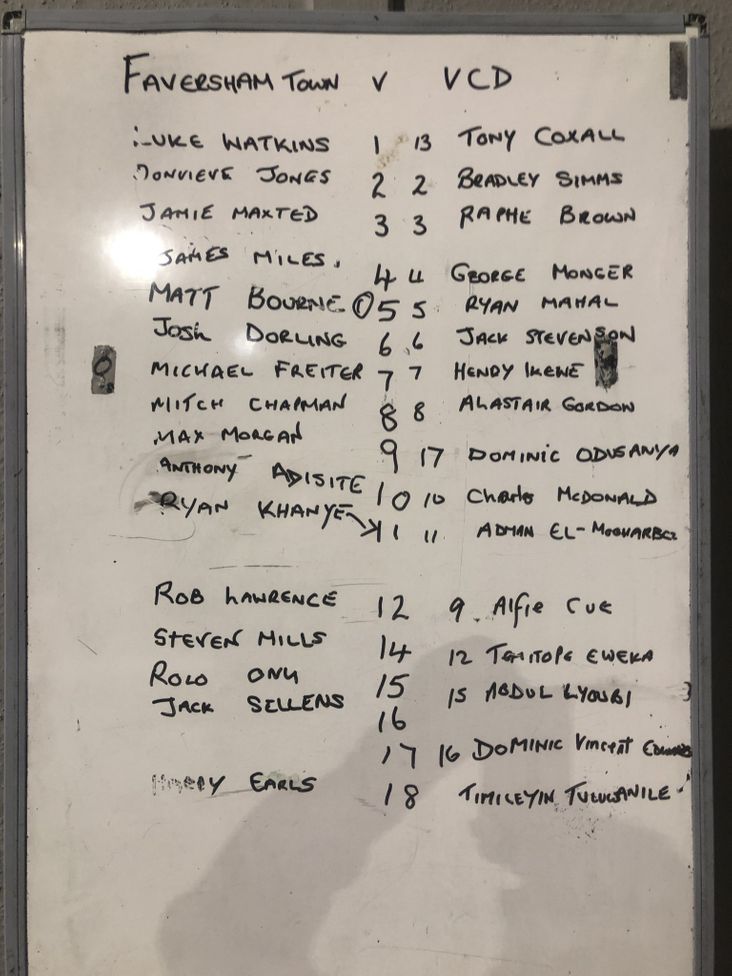 FAVERSHAM TOWN V VCD
LUKE WATKINS 1 13 TONY COXALL
JONVIEVE JONES 2 2 BRADLEY SIMMS
JAMIE MAXTED 3 3 RAPHE BROWN
JAMES MILES. 4 4 GEORGE MONGER
MATT BOURNE © 5 5 RYAN MAHAL
JOSH DORLING 6 6 JACK STEVENSON
MICHAEL FREITER 7 7 HENDY IKENE
MITCH CHAPMAN 8 8 ALASTAIR GORDON
MAX MORGAN 9 17 DOMINIC ODUSANYA
ANTHONY ADISITE 10 10 Charlo McDONALD
RYAN KHANYE 11 11 ADMAN
ROB LAWRENCE 12 9 Alfie CUE
STEVEN MILLS 14 12 TEMITOPE EWEKA
ROLO 15 15 ABDUL LYOUBI
JACK SELLENS 16
17 16 DOMINIC Vincent
HARRY EARLS 18 TIMILEYIN